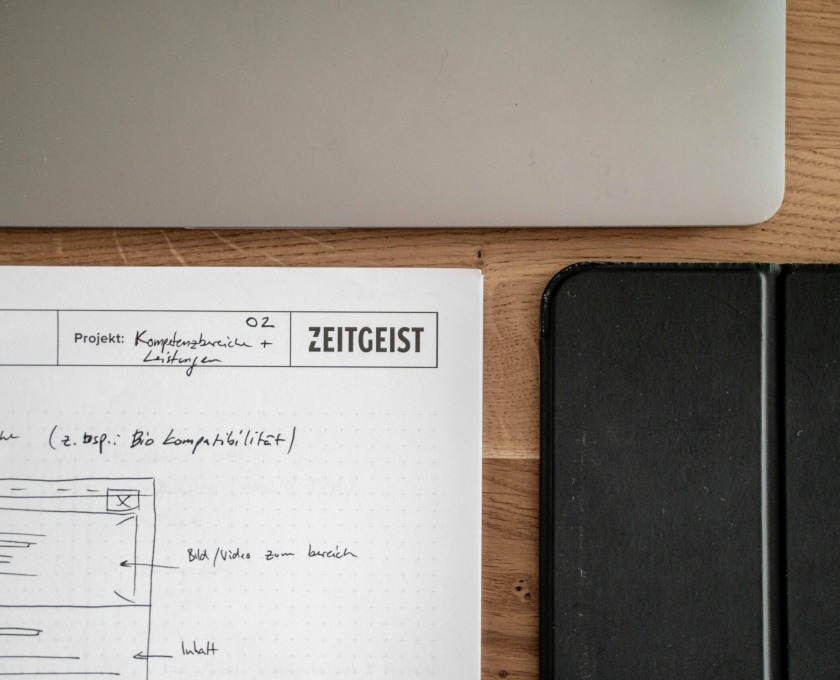 02
Projekt: Kompetenzbereiche +
Leistungen
ZEITGEIST
(z. bsp.: Bio Kompatibilität)
X
Bild/Video zum bereich
Inhalt